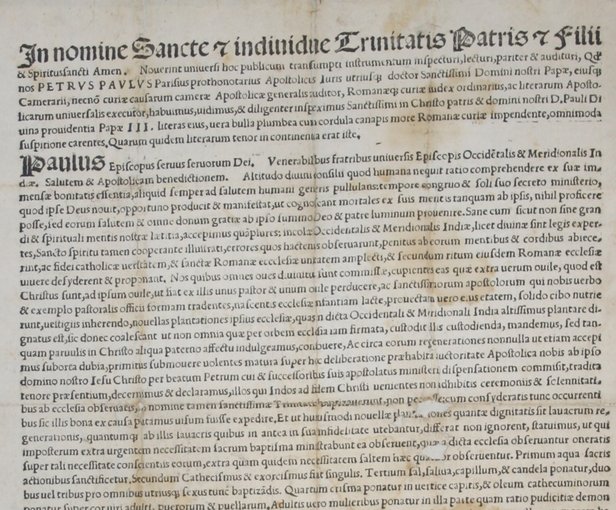 In nomine Sancte ⁊ indiuidue Trinitatis Patris ⁊ Filii
& Spiritussancti Amen. Nouerint uniuersi hoc publicum transumpti instrumentum inspecturi, lecturi, pariter & audituri, Qđ
nos PETRVS PAVLVS Parisius prothonotarius Apostolicus Iuris utriusq; doctor Sanctissimi Domini nostri Papæ, eiusq;
Camerarii, necnõ curiæ causarum cameræ Apostolicæ generalis auditor, Romanæq; curiæ iudex ordinarius, ac literarum Aposto-
licarum uniuersalis executor, habuimus, uidimus, & diligenter inspeximus Sanctissimi in Christo patris & domini nostri D. Pauli Di
uina prouidentia Papæ III. literas eius, uera bulla plumbea cum cordula canapis more Romanæ curiæ impendente, omnimoda
suspitione carentes, Quarum quidem literarum tenor in continentia erat iste.
Paulus Episcopus seruus seruorum Dei. Venerabilibus fratribus uniuersis Episcopis Occidẽtalis & Meridionalis In
dæ. Salutem & Apostolicam benedictionem. Altitudo diuini consilii quod humana nequit ratio comprehendere ex suæ im-
mensæ bonitatis essentia, aliquid semper ad salutem humani generis pullulans: tempore congruo & soli suo secreto ministerio,
quod ipse Deus nouit, opportuno producit & manifestat, ut cognoscant mortales ex suis meritis tanquam ab ipsis, nihil proficere
posse, sed eorum salutem & omne donum gratiæ ab ipso summo Deo & patre luminum prouenire. Sane cum sicut non sine gran
di & spirituali mentis nostræ lætitia, accepimus quãplures: incolæ Occidẽtalis & Meridionalis Indiæ, licet diuinæ sint legis exper-
tes, Sancto spiritu tamen cooperante illustrati, errores quos hactenus obseruarunt, penitus ab eorum mentibus & cordibus abiece
runt, ac fidei catholicæ ueritatem, & sanctæ Romanæ ecclesiæ unitatem amplecti, & secundum ritum eiusdem Romanæ ecclesiæ
uiuere desyderent & proponant. Nos quibus omnes oues diuinitus sunt commissæ, cupientes eas quæ extra uerum ouile, quod est
Christus sunt, ad ipsum ouile, ut fiat ex illis unus pastor & unum ouile perducere, ac sanctissimorum apostolorum qui nobis uerbo
& exemplo pastoralis officii formam tradentes, nascentis ecclesiæ infantiam lacte, prouectam uero eius etatem, solido cibo nutrie
runt, uestigiis inherendo, nouellas plantationes ipsius ecclesiæ, quas in dicta Occidentali & Meridionali India altissimus plantare di-
gnatus est, sic donec coalescant ut non omnia quæ per orbem ecclesia iam firmata, custodit illis custodienda, mandemus, sed tan-
quam paruulis in Christo aliqua paterno affectu indulgeamus, confouere, Ac circa eorum regenerationes nonnulla ut etiam accepi
mus suborta dubia, primitus submouere uolentes matura super hoc deliberatione præhabita auctoritate Apostolica nobis ab ipso
domino nostro Iesu Christo per beatum Petrum cui & successoribus suis apostolatus ministerii dispensationem commisit, tradita
tenore præsentium, decernimus & declaramus, illos qui Indos ad fidem Christi uenientes non adhibitis ceremoniis & solennitati-
bus ab ecclesia obseruatis, in nomine tamen sanctissimæ Trinitatis baptizauerunt, non peccasse, cum consyderatis tunc occurrenti
bus sic illis bona ex causa putamus uisum fuisse expedire. Et ut huiusmodi nouellæ plantationes quantæ dignitatis sit lauacrum re-
generationis, quantumq; ab illis lauacris quibus in antea in sua infidelitate utebantur, differat non ignorent, statuimus, ut qui
imposterum extra urgentem necessitatem sacrum baptisma ministrabunt ea obseruent, quæ a dicta ecclesia obseruantur oneratis
super tali necessitate conscientiis eorum, extra quam quidem necessitatem saltem hæc quatuor obseruentur. Primum aqua sacris
actionibus sanctificetur, Secundum Cathecismus & exorcismus fiat singulis. Tertium sal, saliua, capillum, & candela ponatur, duo
bus uel tribus pro omnibus utriusq; sexus tunc baptizãdis. Quartum crisma ponatur in uertice capitis, & oleum cathecuminorum
ponatur super cor uiri adulti, puerorum & puellarum, Adultis uero mulieribus ponatur in illa parte quam ratio pudicitiæ demon